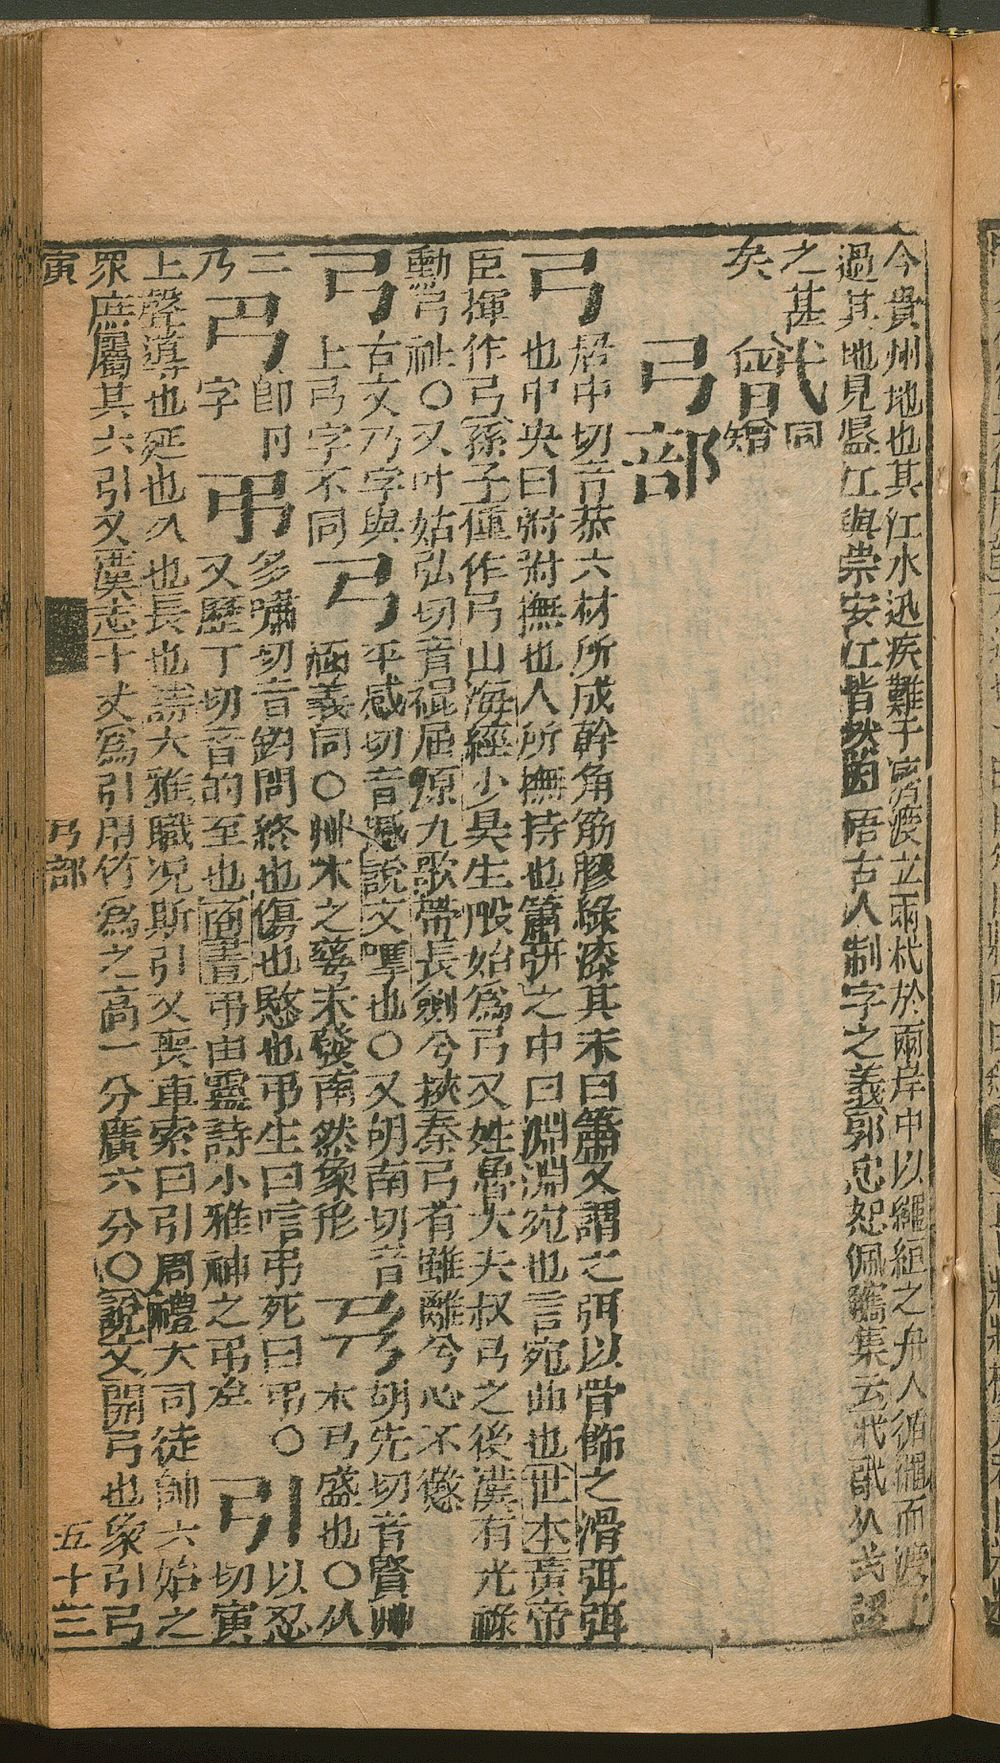 今貴州地也其江水迅疾難于濟渡立兩杙於兩岸中以繩絙之舟人循繩而渡
過其地見盤江與崇安江皆然因悟古人制字之義郭忠恕佩觿集云
之甚
矣
同
矰
弓部
弓
居中切音恭六材所成幹角筋膠絲漆其末曰簫又謂之弭以骨飾之滑弭弭
也中央曰弣弣撫也人所撫持也簫弣之中曰淵淵宛也言宛曲也世本黃帝
臣揮作弓孫子僆作弓山海經少昊生般始為弓又姓魯大夫叔弓之後漢有光祿
勳弓祉○又叶姑弘切音裩屈原九歌帶長劍兮挾秦弓有雖離兮心不懲
弓
古文乃字與
上弓字不同
乎感切音㘎說文嘾也○又胡南切音
涵義同○艸木之㝹未發南然象形
胡先切音賢艸
木弓盛也○从
二
乃
卽
字
弔
多嘯切音釣問終也傷也愍也弔生曰唁弔死曰弔○
又歷丁切音的至也商書弔由靈詩小雅神之弔矣
引
以忍
切寅
上聲導也延也久也長也詩大雅職況斯引又喪車索曰引周禮大司徒帥六始之
眾庶屬其六引又漢志十丈為引用竹為之高一分廣六分○說文開弓也象引弓
寅
弓部
五十三